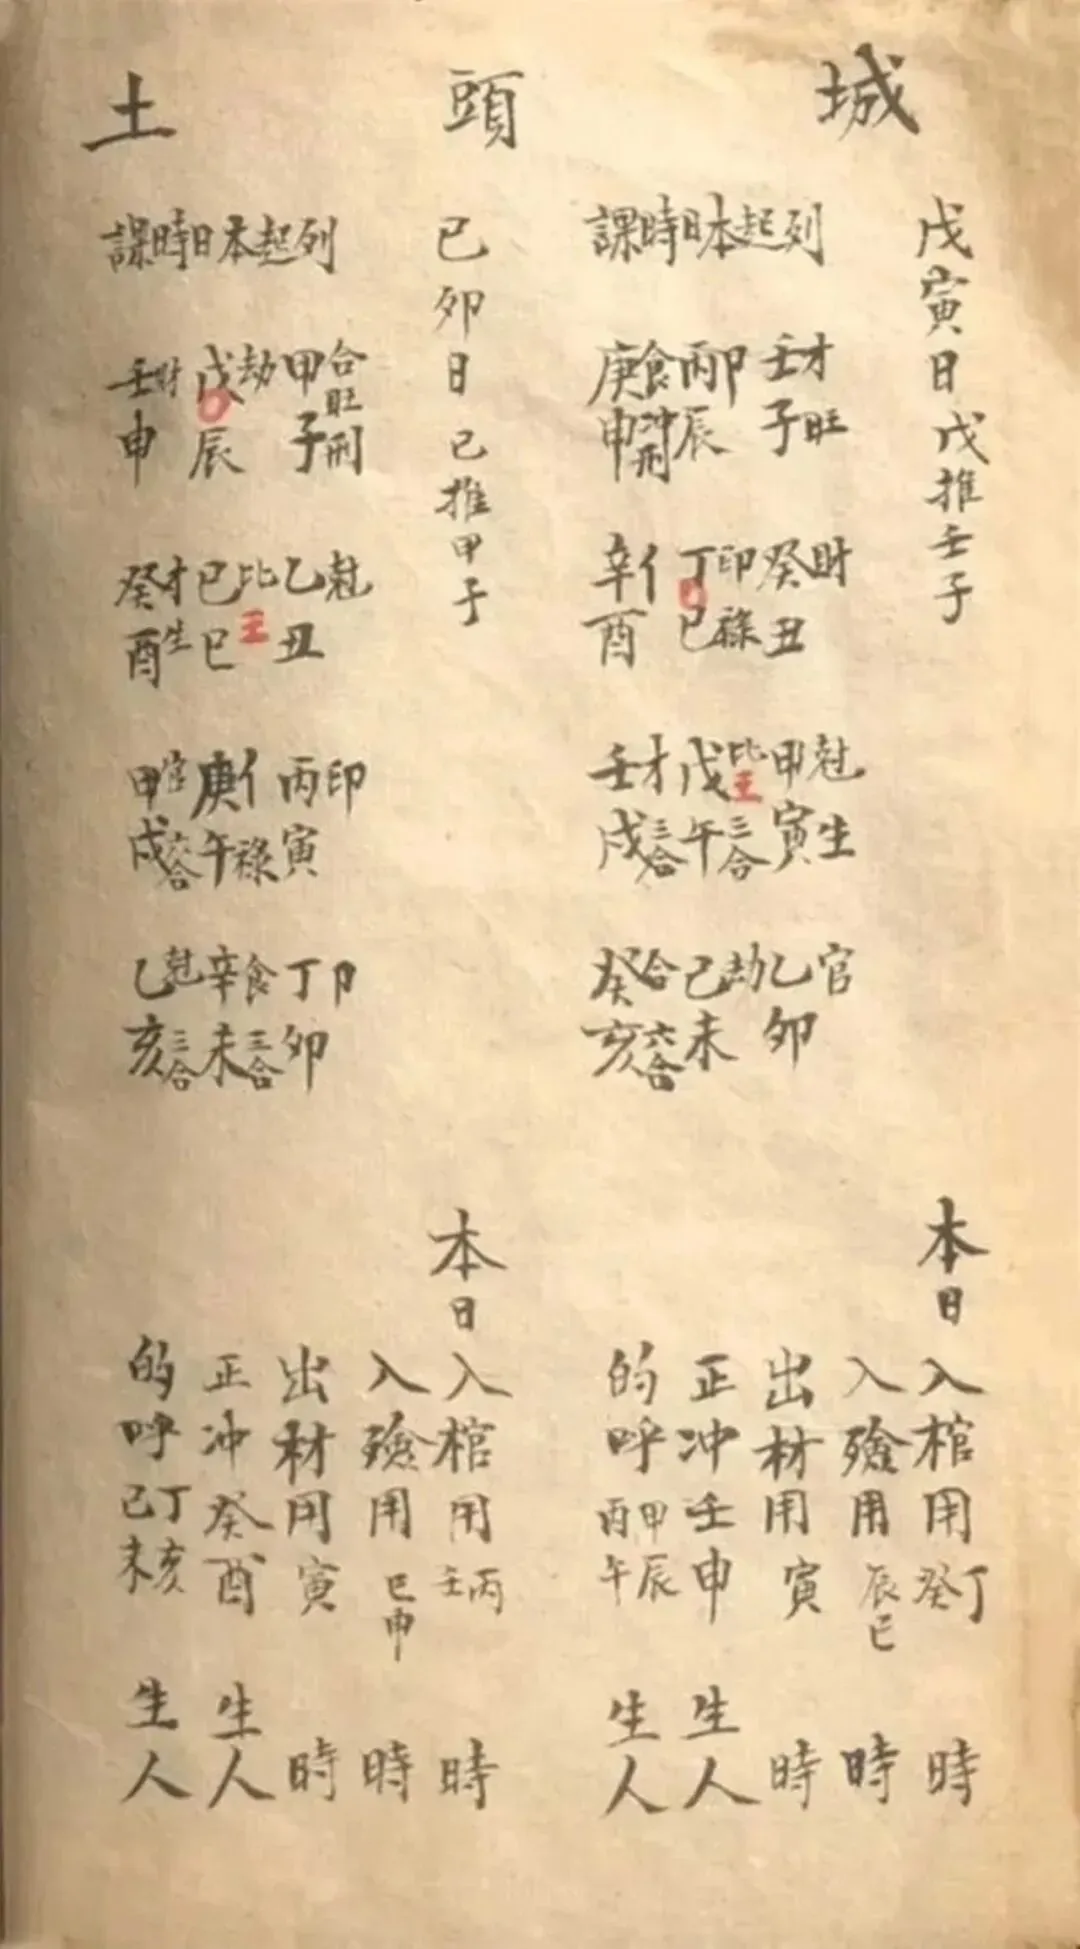 城頭土
戊寅日戊推壬子
列起本日時課
壬才子旺
丙卩辰
庚食申冲刑
癸財丑
丁印巳祿
辛亻酉
甲尅寅生
戊比王午三合
壬才戌三合
乙官卯
己劫未
癸合亥六合
本日
入棺用丁癸時
入殮用辰巳時
出材用寅時
正冲壬申生人
的呼甲辰丙午生人
己卯日己推甲子
列起本日時課
甲合子旺刑
戊劫辰
壬財申
乙尅丑
己比王巳
癸才酉生
丙印寅
庚亻午祿
甲官戌六合
丁卩卯
辛食未三合
乙尅亥三合
本日
入棺用丙壬時
入殮用巳申時
出材用寅時
正冲癸酉生人
的呼丁亥己未生人